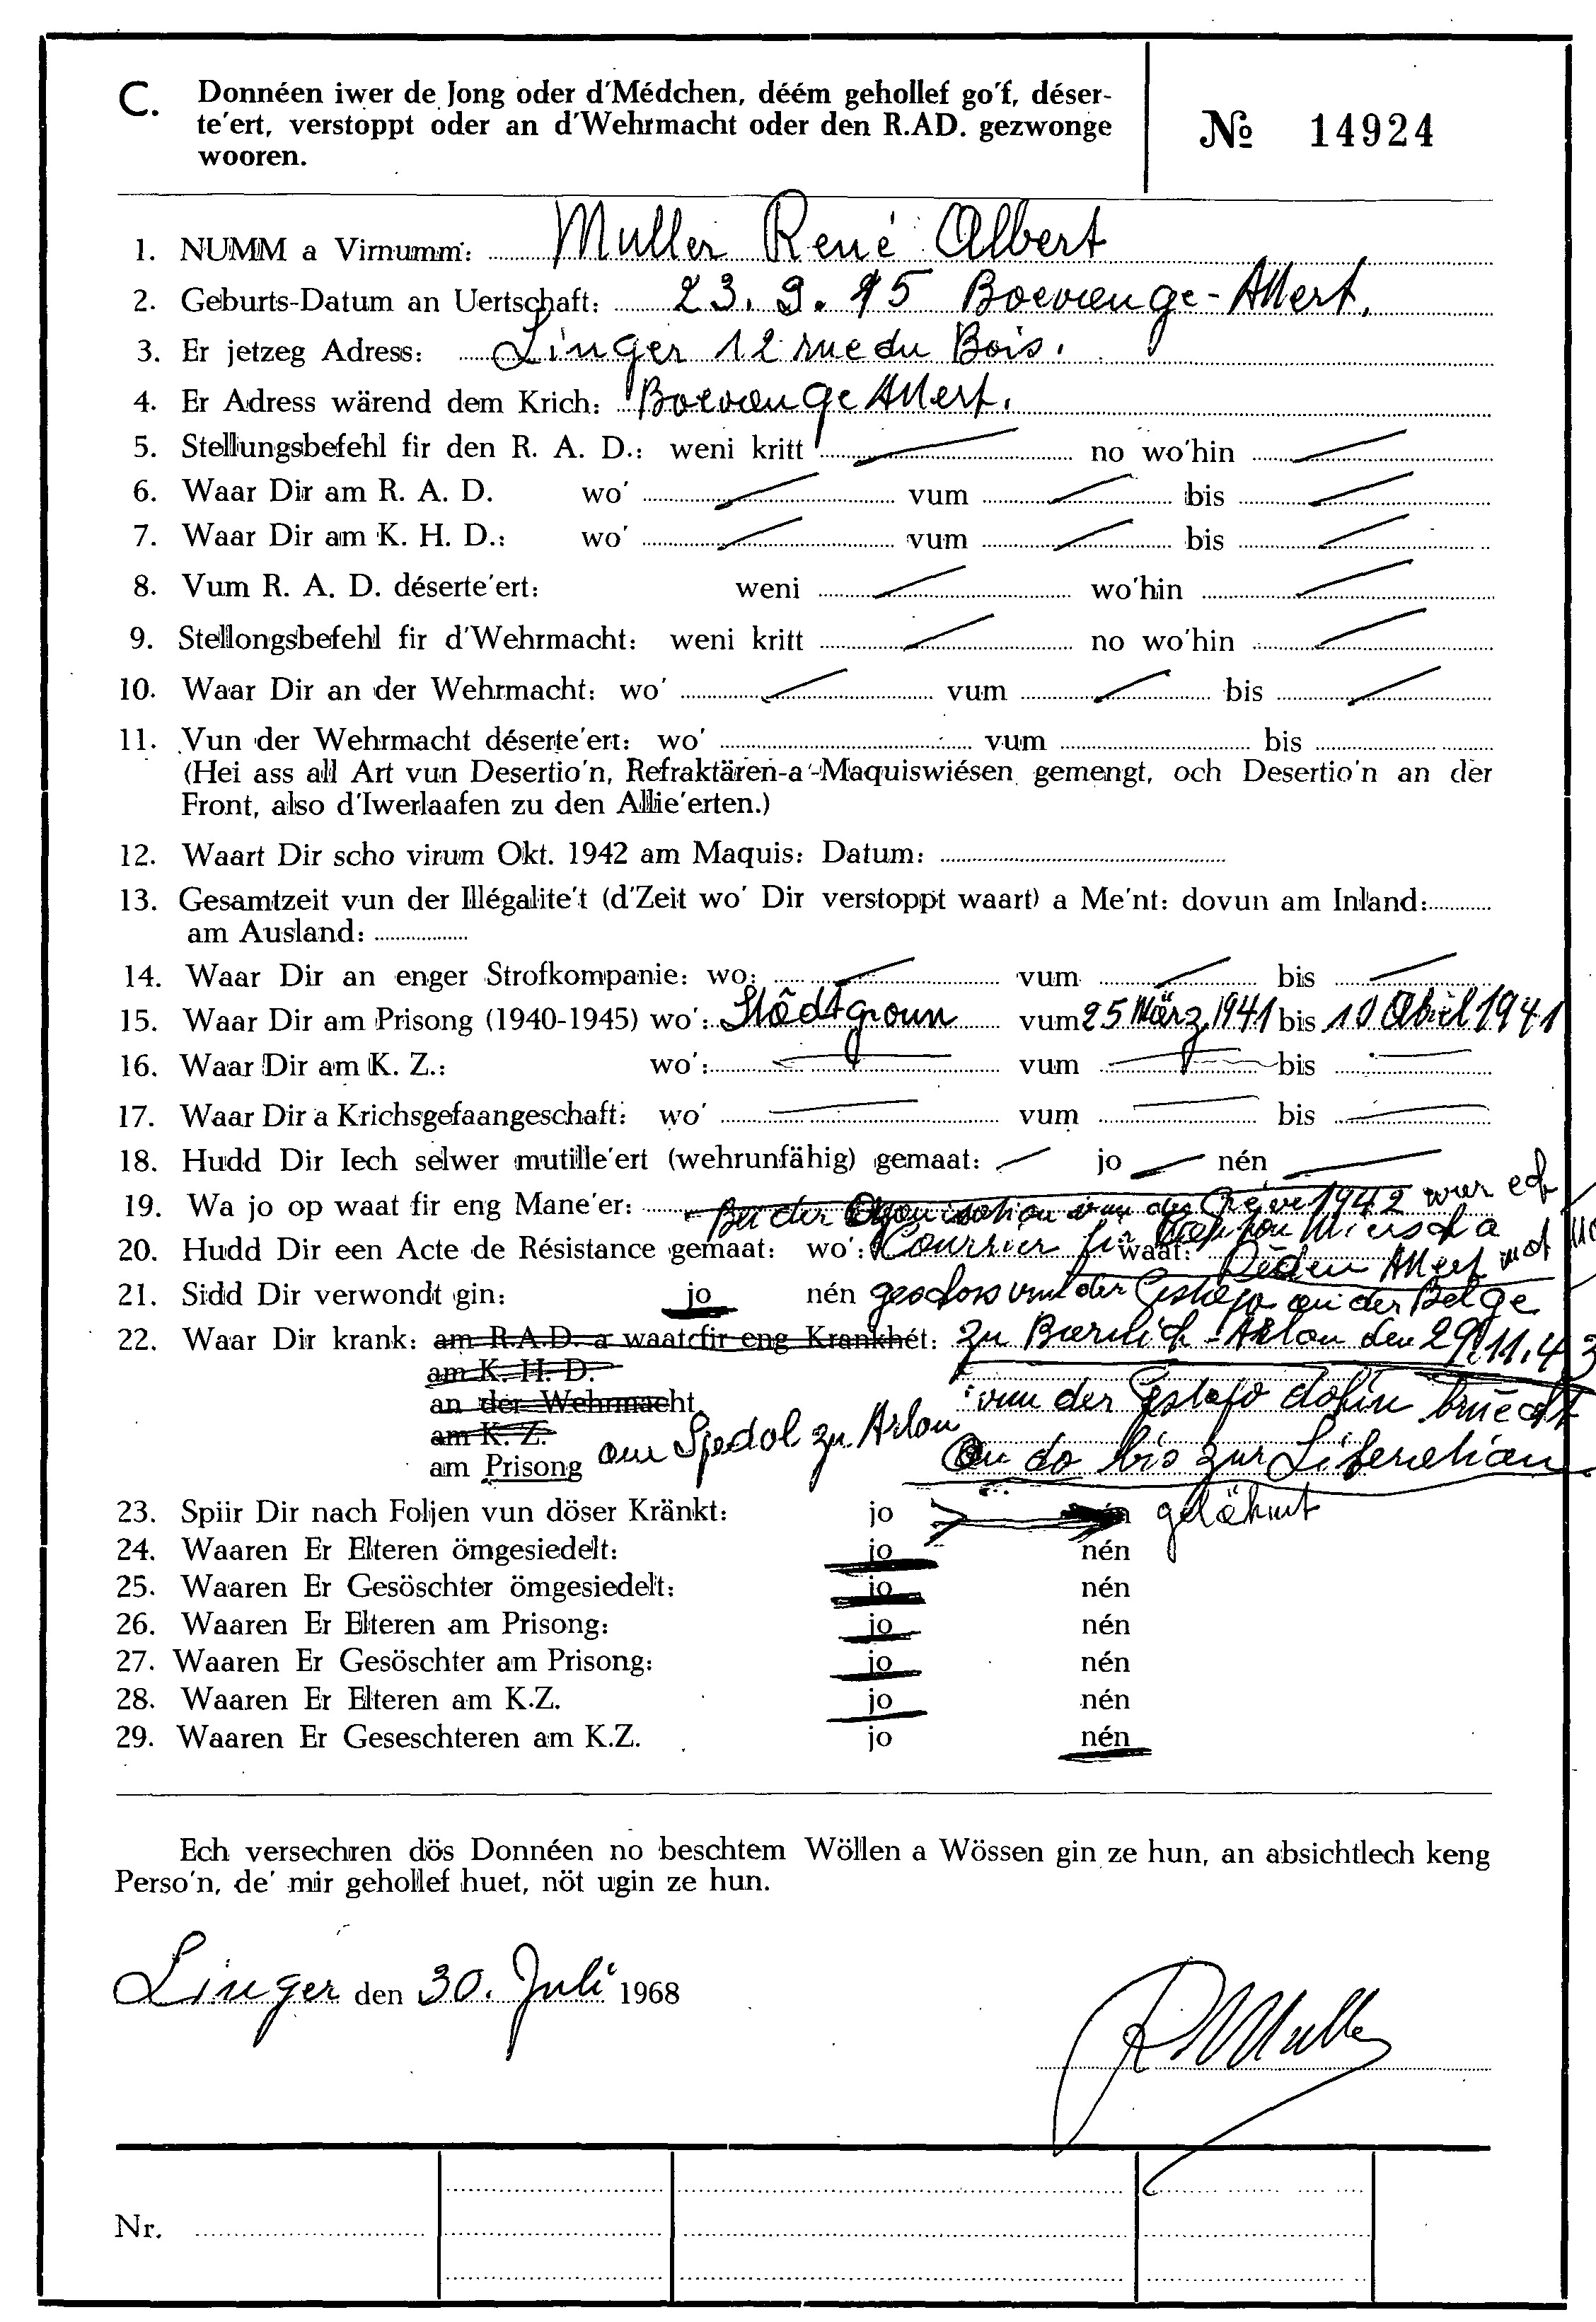 C. Donnéen iwer de Jong oder d'Médchen, déém gehollef go'f, déser-
te'ert, verstoppt oder an d'Wehrmacht oder den R.AD. gezwonge
wooren.
№ 14924
1. NUMM a Virnumm: Muller René Albert
2. Geburts-Datum an Uertschaft: 23. 9. 15 Boevange-Attert.
3. Er jetzeg Adress: Linger 12 rue du Bois.
4. Er Adress wärend dem Krich: Boevange Attert.
5. Stellungsbefehl fir den R. A. D.: weni kritt no wo'hin
6. Waar Dir am R. A. D. wo' vum bis
7. Waar Dir am K. H. D.: wo' vum bis
8. Vum R. A. D. déserte'ert: weni wo'hin
9. Stellongsbefehl fir d'Wehrmacht: weni kritt no wo'hin
10. Waar Dir an der Wehrmacht: wo' vum bis
11. Vun der Wehrmacht déserte'ert: wo' vum bis
(Hei ass all Art vun Desertio'n, Refraktären-a'-Maquiswiésen gemengt, och Desertio'n an der
Front, also d'Iwerlaafen zu den Allie'erten.)
12. Waart Dir scho virum Okt. 1942 am Maquis: Datum:
13. Gesamtzeit vun der Illégalite't (d'Zeit wo' Dir verstoppt waart) a Me'nt: dovun am Inland:
am Ausland:
14. Waar Dir an enger Strofkompanie: wo: vum bis
15. Waar Dir am Prisong (1940-1945) wo': Stôdtgroun vum 25 März 1941 bis 10 Abril 1941
16. Waar Dir am K. Z.: wo': vum bis
17. Waar Dir a Krichsgefaangeschaft: wo' vum bis
18. Hudd Dir Iech selwer mutille'ert (wehrunfähig) gemaat: jo nén
19. Wa jo op waat fir eng Mane'er: Bei der Organisatioun vun der Grève 1942 war ech
20. Hudd Dir een Acte de Résistance gemaat: wo': Courrier fir waat: Miersch a
Attert
21. Sidd Dir verwondt gin: jo nén geschoss vun der Gestapo an der Belge
22. Waar Dir krank: am R.A.D. a waat fir eng Krankhét: zu Arlon den 29.11.43
am K. H. D.
an der Wehrmacht vun der Gestapo dohin bruecht
am K. Z.
am Prisong am Spedol zu Arlon an do bis zur Liberation
23. Spiir Dir nach Foljen vun döser Kränkt: jo gelähmt
24. Waaren Er Elteren ömgesiedelt: jo nén
25. Waaren Er Gesöschter ömgesiedelt: jo nén
26. Waaren Er Elteren am Prisong: jo nén
27. Waaren Er Gesöschter am Prisong: jo nén
28. Waaren Er Elteren am K.Z. jo nén
29. Waaren Er Geseschteren am K.Z. jo nén
Ech versechren dös Donnéen no beschtem Wöllen a Wössen gin ze hun, an absichtlech keng
Perso'n, de' mir gehollef huet, nöt ugin ze hun.
Linger den 30. Juli 1968
R Muller
Nr.